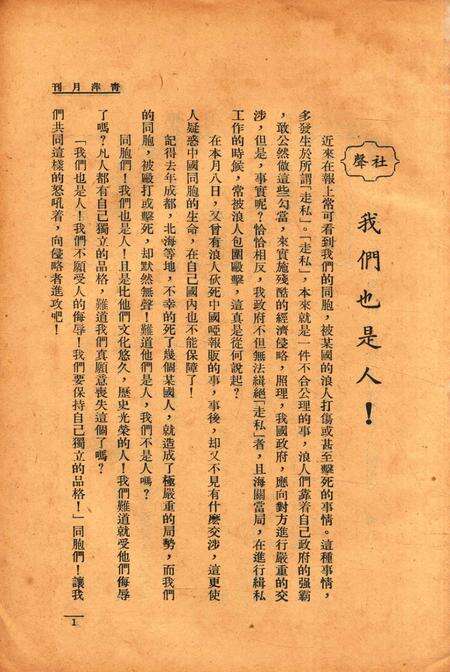 刊月萍青
社聲
我們也是人！
近來在報上常可看到我們的同胞，被某國的浪人打傷或甚至擊死的事情。這種事情，
多發生於所謂「走私」。「走私」，本來就是一件不合公理的事，浪人們靠着自己政府的强霸
，敢公然做這些勾當，來實施殘酷的經濟侵略，照理，我國政府，應向對方進行嚴重的交
涉，但是，事實呢？恰恰相反，我政府不但無法緝絕「走私」者，且海關當局，在進行緝私
工作的時候，常被浪人包圍毆擊，這真是從何說起？
在本月八日，又曾有浪人砍死中國啞報販的事，事後，却又不見有什麽交涉，這更使
人疑惑中國同胞的生命，在自己國內也不能保障了！
記得去年成都，北海等地，不幸的死了幾個某國人，就造成了極嚴重的局勢，而我們
的同胞，被毆打或擊死，却默然無聲！難道他們是人，我們不是人嗎？
同胞們！我們也是人！且是比他們文化悠久，歷史光榮的人！我們難道就受他們侮辱
了嗎？凡人都有自己獨立的品格，難道我們真願意喪失這個了嗎？
「我們也是人！我們不願受人的侮辱！我們要保持自己獨立的品格！」同胞們！讓我
們共同這樣的怒吼着，向侵略者進攻吧！
1